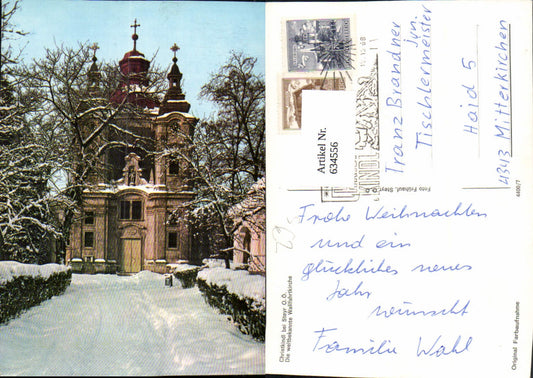 Frohe Weihnachten
und ein
glückliches neues
Jahr
wünscht
Familie Wahl
Franz Brandner
jun.
Tischlermeister
Haid 5
4343 Mitterkirchen
Artikel Nr.
634556
Christkindl bei Steyr O.Ö.
Die weltbekannte Wallfahrtkirche
Foto Frühauf, Steyr O.Ö.
4400/7
Original Farbaufnahme